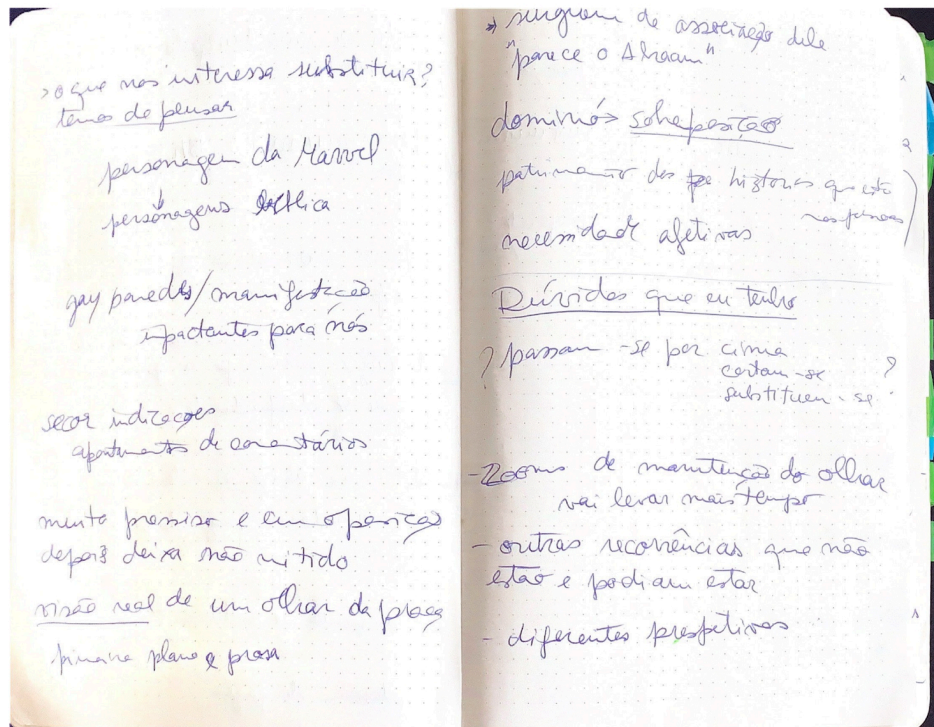 > o que nos interessa substituir?
temos de pensar
personagem da Marvel
personagens
gay parades/manifestação
impactantes para nós
secar indicações
apontamentos de comentários
muito preciso e em oposição
depois deixa não nitido
visão real de um olhar da praça
primeiro plano e
de associação dele
"parece o Abraam"
dominó > sobreposição
patrimonio das historias que estão
nas pessoas
necessidade afetivas
Dúvidas que eu tenho
? passam-se por cima
cortam-se
substituem-se ?
- Zooms de manutenção do olhar
vai levar mais tempo
- outras recorrências que não
estão e podiam estar
- diferentes prespetivas